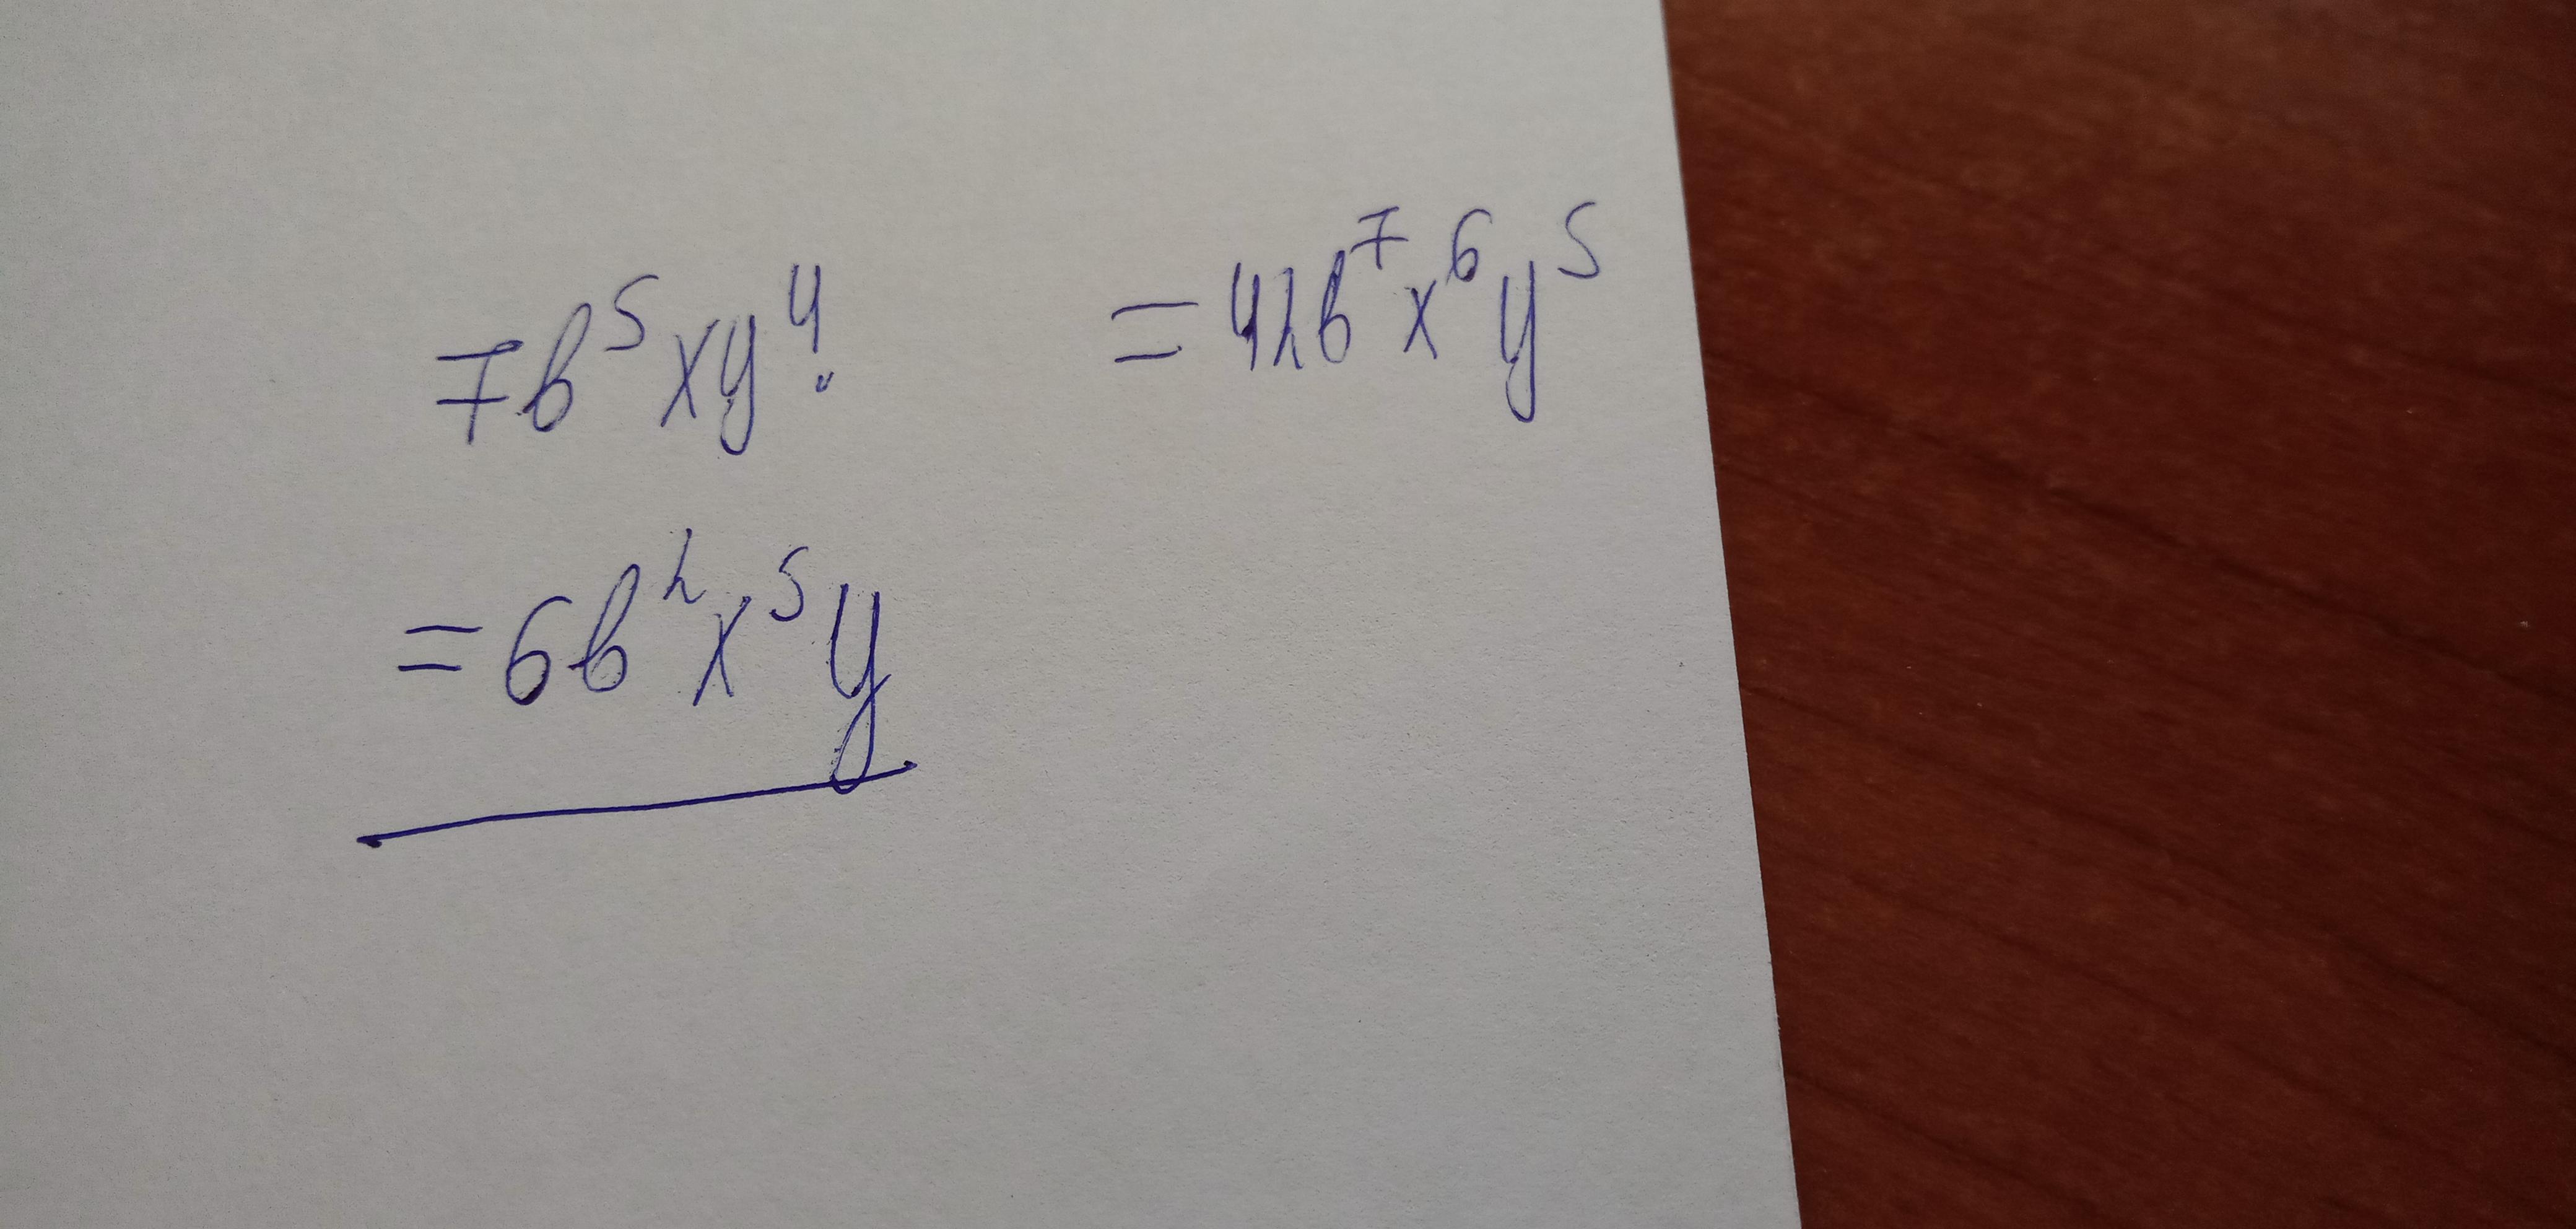 7b⁵xy⁴· = 42b⁷x⁶y⁵
= 6b²x⁵y